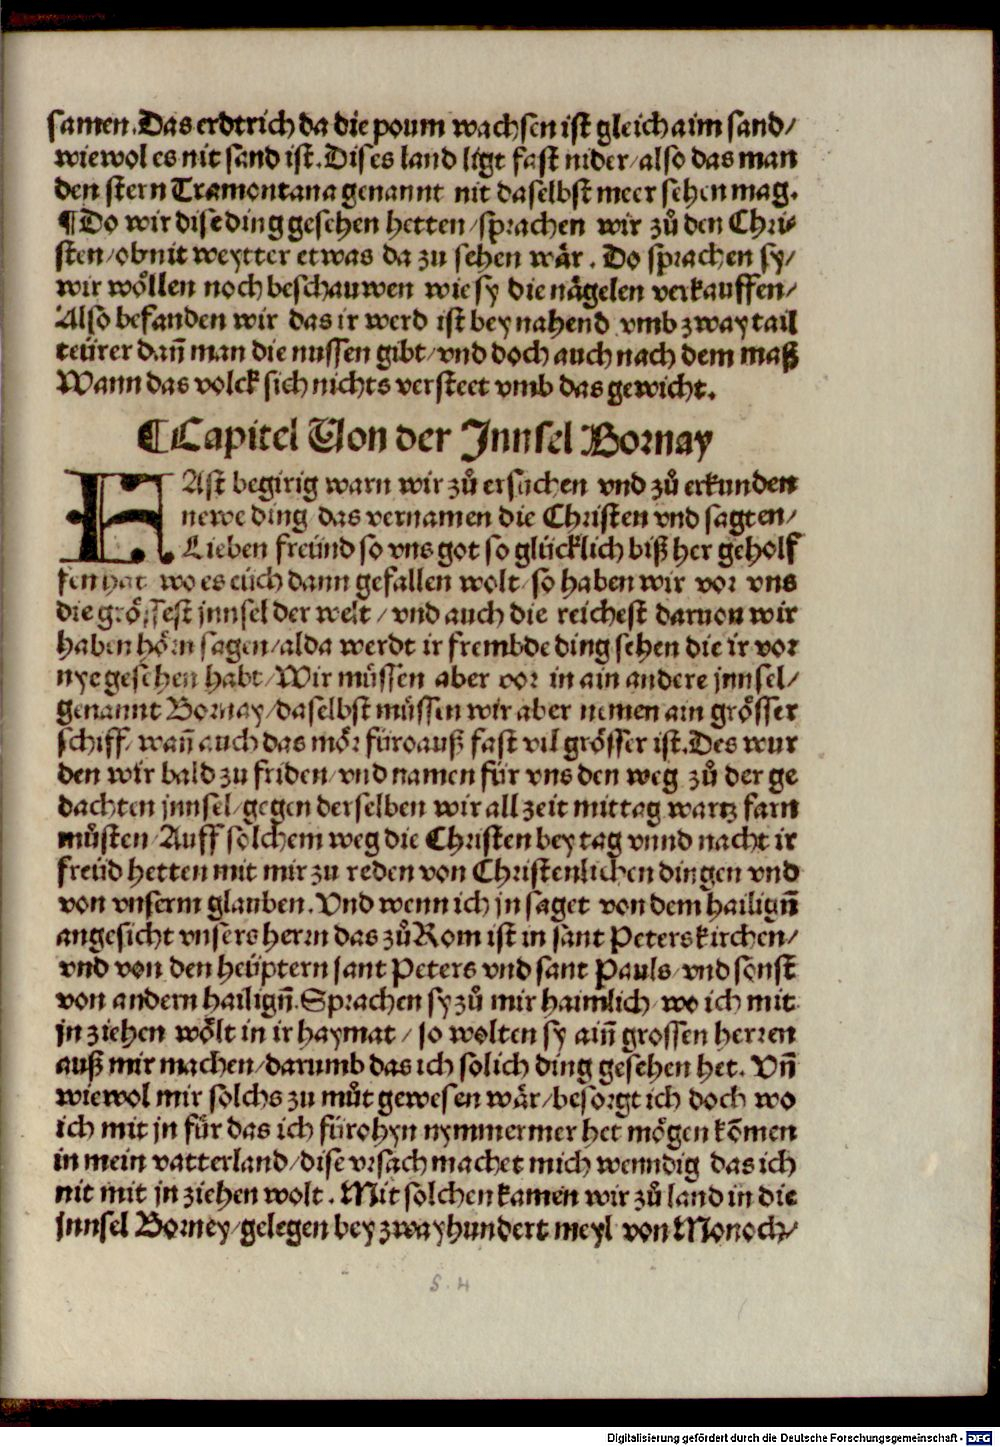 samen. Das erdtrich da die poum wachsen ist gleich aim sand/
wiewol es nit sand ist. Dises land ligt fast nider/also das man
den stern Tramontana genannt nit daselbst meer sehen mag.
¶Do wir dise ding gesehen hetten/sprachen wir zů den Chri⸗
sten/ob nit weytter etwas da zu sehen wär. Do sprachen sy/
wir wöllen noch beschauwen wie sy die nägelen verkauffen/
Also befanden wir das ir werd ist bey nahend vmb zway tail
teürer dañ man die nussen gibt/vnd doch auch nach dem maß
Wann das volck sich nichts versteet vmb das gewicht.
¶Capitel Von der Jnnsel Bornay
FAst begirig warn wir zů ersůchen vnd zů erkunden
newe ding das vernamen die Christen vnd sagten/
Lieben freünd so vns got so glücklich biß her geholf
fen hat wo es eüch dann gefallen wolt/so haben wir vor vns
die grössest jnnsel der welt/vnd auch die reichest daruon wir
haben hörn sagen/alda werdt ir frembde ding sehen die ir vor
nye gesehen habt/Wir müssen aber vor in ain andere jnnsel/
genannt Bornay/daselbst müssen wir aber nemen ain grösser
schiff/wañ auch das mör füroauß fast vil grösser ist. Des wur
den wir bald zu friden/vnd namen für vns den weg zů der ge
dachten jnnsel/gegen derselben wir all zeit mittag wartz farn
můsten/Auff solchem weg die Christen bey tag vnnd nacht ir
freüd hetten mit mir zu reden von Christenlichen dingen vnd
von vnserm glauben. Vnd wenn ich jn saget von dem hailigñ
angesicht vnsers herrn das zů Rom ist in sant Peters kirchen/
vnd von den heüptern sant Peters vnd sant Pauls/vnd sonst
von andern hailigñ. Sprachen sy zů mir haimlich/wo ich mit
jn ziehen wölt in ir haymat/so wolten sy aiñ grossen herren
auß mir machen/darumb das ich solich ding gesehen het. Vñ
wiewol mir solchs zu můt gewesen wär/besorgt ich doch wo
ich mit jn für das ich fürohyn nymmermer het mögen kōmen
in mein vatterland/dise vrsach machet mich wenndig das ich
nit mit jn ziehen wolt. Mit solchen kamen wir zů land in die
jnnsel Borney/gelegen bey zwayhundert meyl von Monoch/
Digitalisierung gefördert durch die Deutsche Forschungsgemeinschaft - DFG